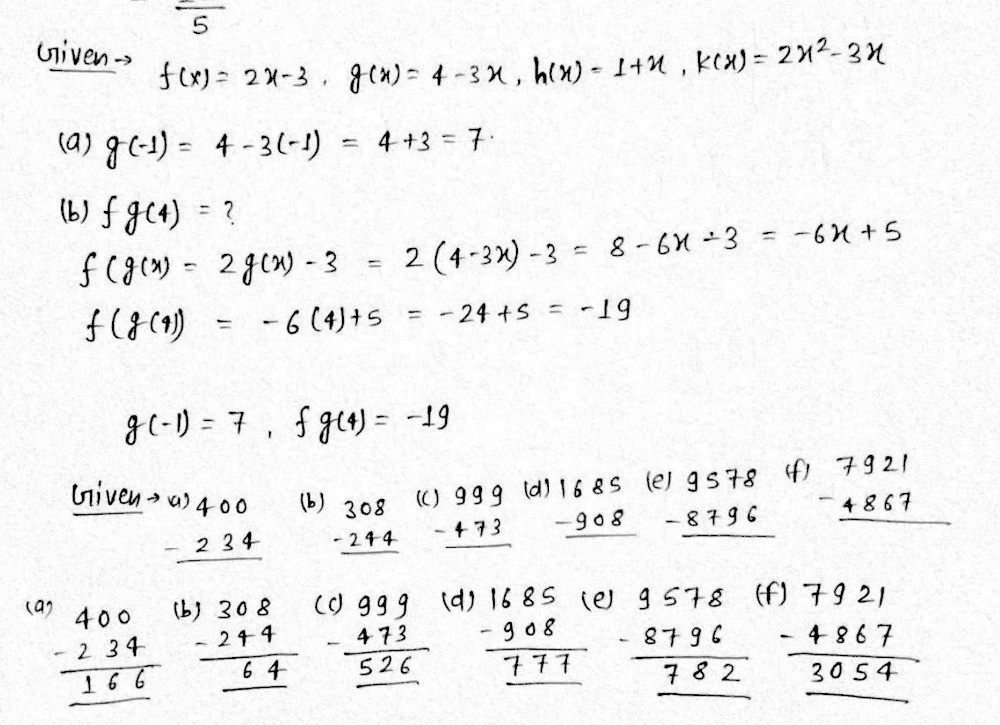 5
Given → f(x) = 2x-3, g(x) = 4-3x, h(x) = 1+x, k(x) = 2x²-3x
(a) g(-1) = 4-3(-1) = 4+3 = 7.
(b) f g(4) = ?
f(g(x) = 2g(x) - 3 = 2(4-3x) - 3 = 8-6x-3 = -6x+5
f(g(4)) = -6(4)+5 = -24+5 = -19
g(-1) = 7, f g(4) = -19
Given → a) 400 (b) 308 (c) 999 (d) 1685 (e) 9578 (f) 7921
- 234 -244 -473 -908 -8796 -4867
(a) 400 (b) 308 (c) 999 (d) 1685 (e) 9578 (f) 7921
-234 -244 -473 -908 -8796 -4867
166 64 526 777 782 3054